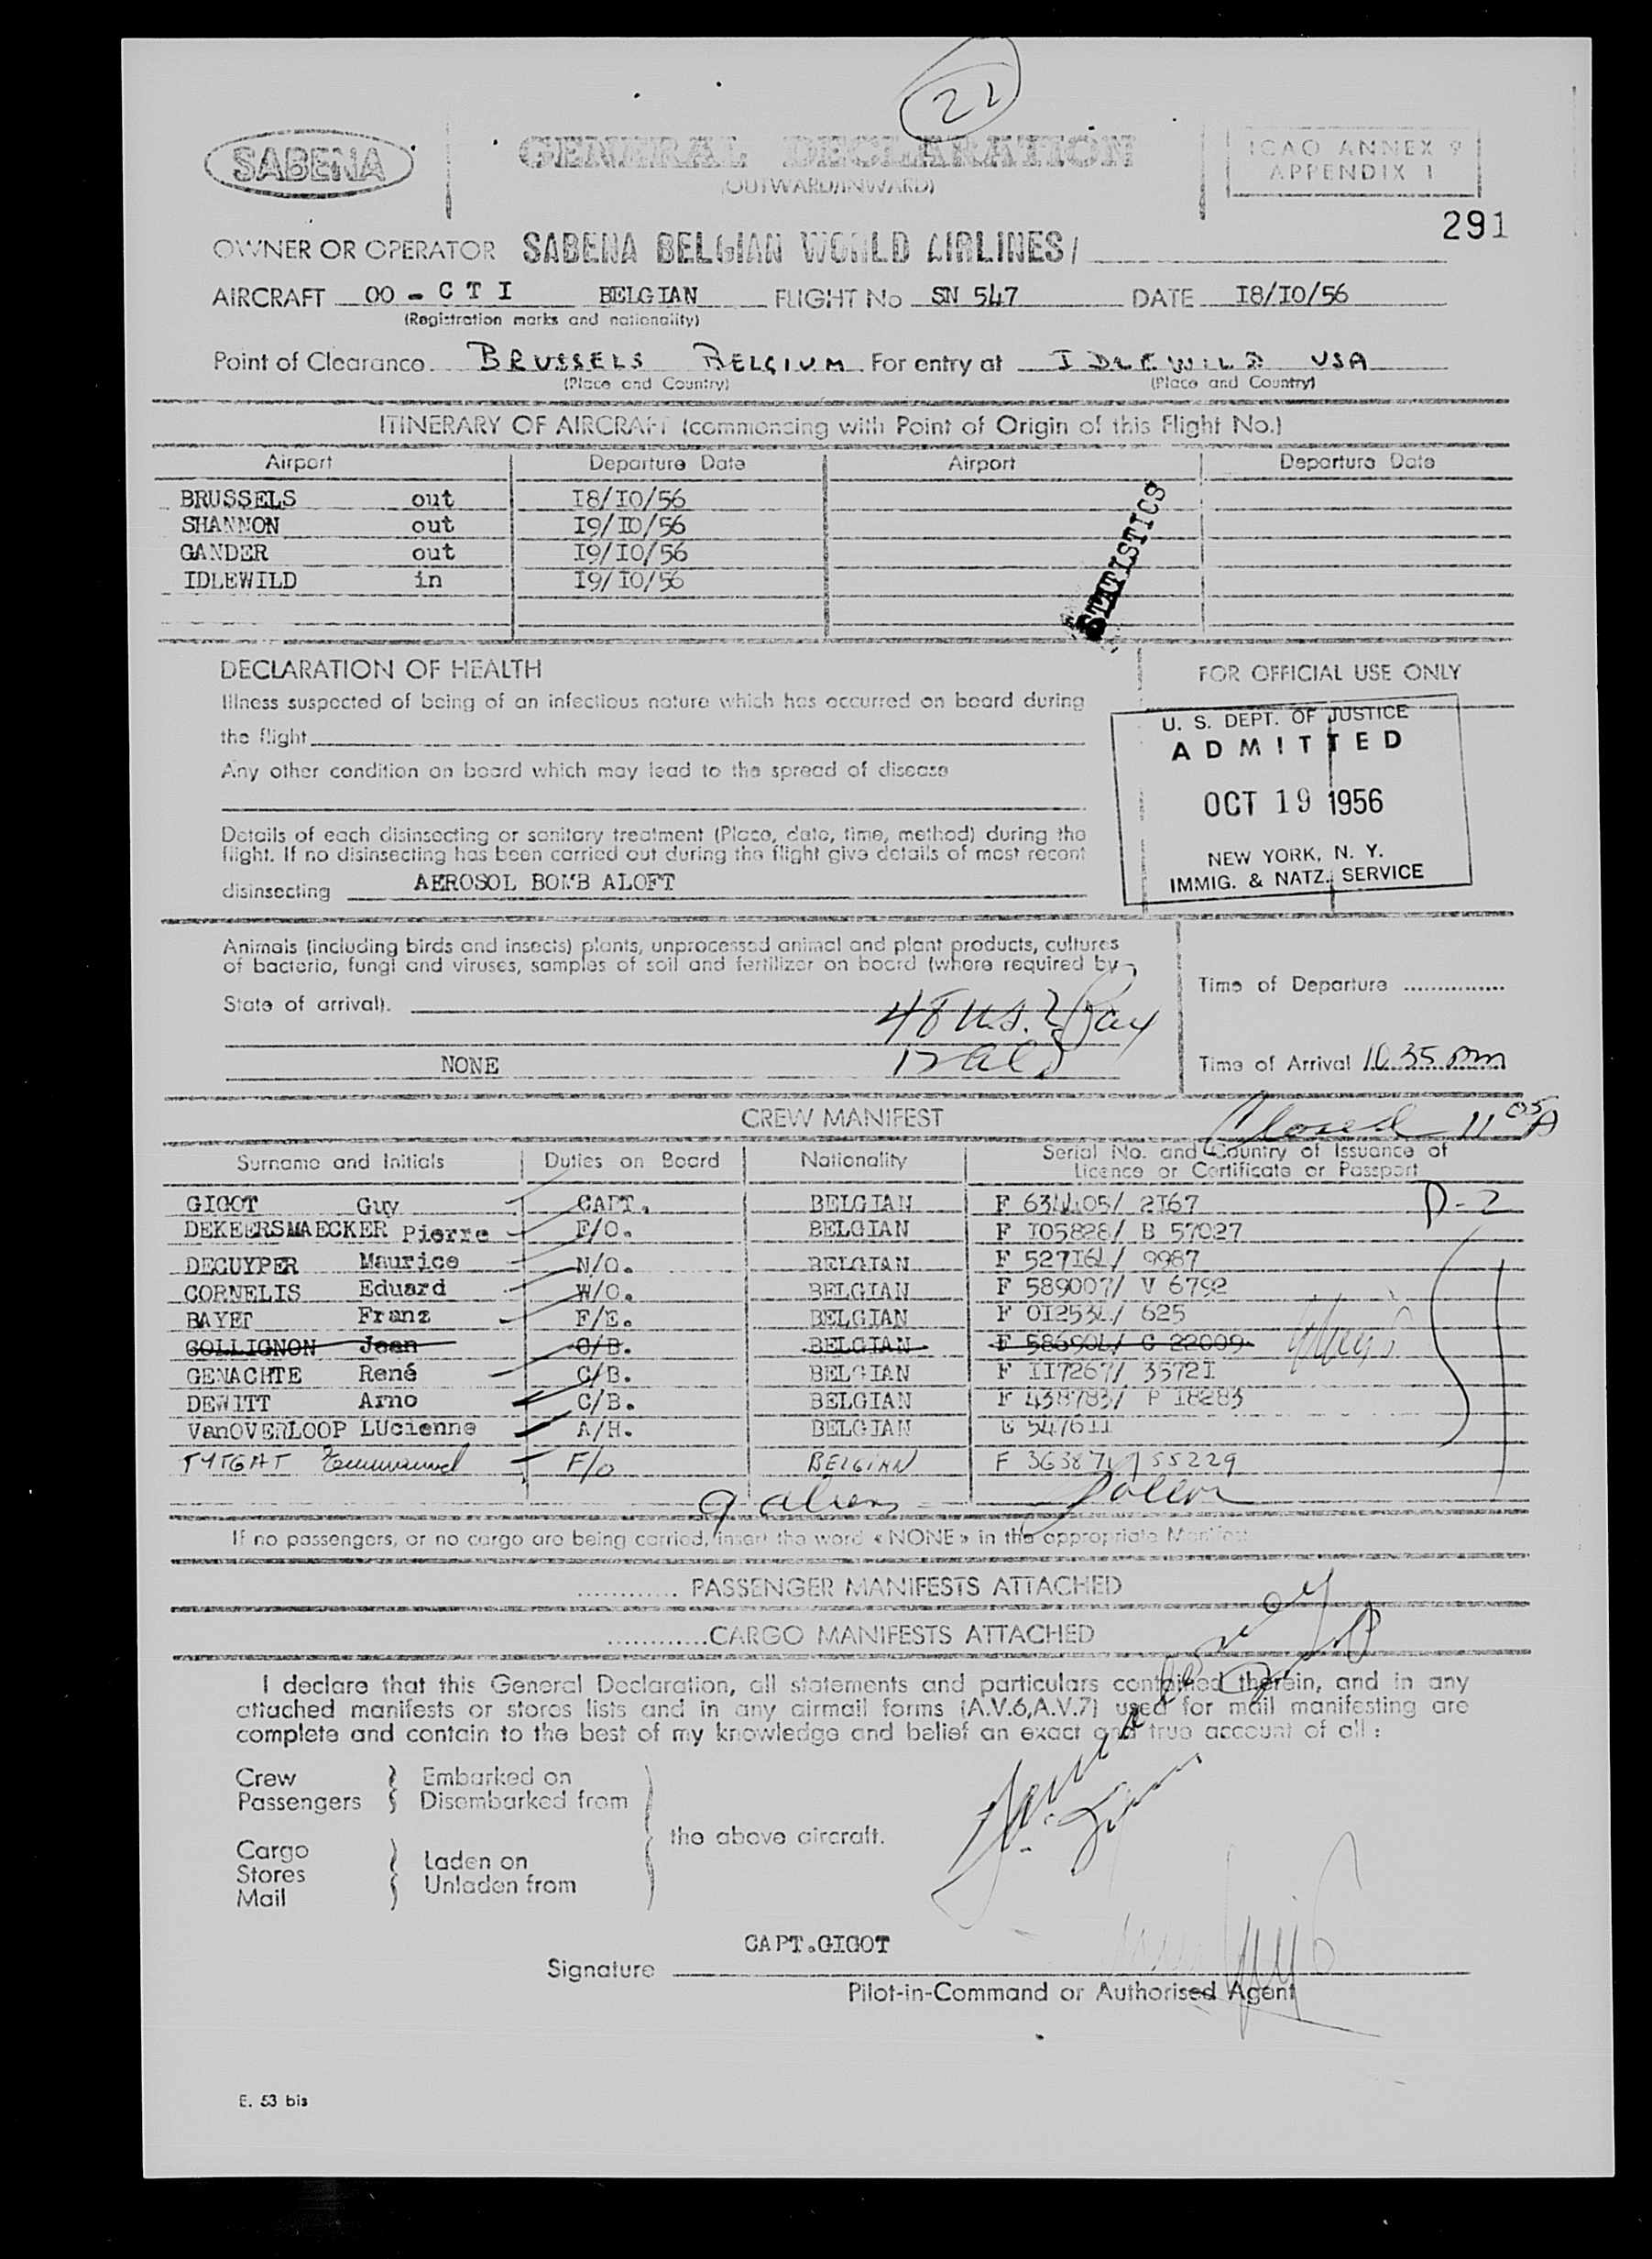 22
SABENA GENERAL DECLARATION ICAO ANNEX 9
(OUTWARD/INWARD) APPENDIX 1
291
OWNER OR OPERATOR SABENA BELGIAN WORLD AIRLINES/
AIRCRAFT OO - C T I BELGIAN FLIGHT No SN 547 DATE I8/IO/56
(Registration marks and nationality)
Point of Clearance. BRUSSELS BELGIUM For entry at IDLEWILD USA
(Place and Country) (Place and Country)
ITINERARY OF AIRCRAFT (commencing with Point of Origin of this Flight No.)
Airport Departure Date Airport Departure Date
BRUSSELS out I8/IO/56
SHANNON out I9/IO/56
GANDER out I9/IO/56
IDLEWILD in I9/IO/56
STATISTICS
DECLARATION OF HEALTH FOR OFFICIAL USE ONLY
Illness suspected of being of an infectious nature which has occurred on board during
the flight
Any other condition on board which may lead to the spread of disease
U. S. DEPT. OF JUSTICE
ADMITTED
OCT 19 1956
NEW YORK, N. Y.
IMMIG. & NATZ. SERVICE
Details of each disinsecting or sanitary treatment (Place, date, time, method) during the
flight. If no disinsecting has been carried out during the flight give details of most recent
disinsecting AEROSOL BOMB ALOFT
Animals (including birds and insects) plants, unprocessed animal and plant products, cultures
of bacteria, fungi and viruses, samples of soil and fertilizer on board (where required by
State of arrival).
NONE
Time of Departure ...............
Time of Arrival 10 35 pm
CREW MANIFEST
Closed 11 05 A
Surname and Initials Duties on Board Nationality Serial No. and Country of Issuance of
Licence or Certificate or Passport
GIGOT Guy CAPT. BELGIAN F 634405/ 2I67 D-2
DEKEERSMAECKER Pierre F/O. BELGIAN F I05828/ B 57027
DECUYPER Maurice N/O. BELGIAN F 527I64/ 9987
CORNELIS Eduard W/O. BELGIAN F 589007/ V 6792
BAYET Franz F/E. BELGIAN F 0I2534/ 625
COLLIGNON Jean C/B. BELGIAN F 586904/ C 22009
GENACHTE René C/B. BELGIAN F II7267/ 3572I
DEWITT Arno C/B. BELGIAN F 438783/ P I8283
VanOVERLOOP LUcienne A/H. BELGIAN 5476II
TYTGAT Emmanuel F/O BELGIAN F 36387 55229
9 aliens
If no passengers, or no cargo are being carried, insert the word « NONE » in the appropriate Manifest
............ PASSENGER MANIFESTS ATTACHED
............CARGO MANIFESTS ATTACHED
I declare that this General Declaration, all statements and particulars contained therein, and in any
attached manifests or stores lists and in any airmail forms (A.V.6,A.V.7) used for mail manifesting are
complete and contain to the best of my knowledge and belief an exact and true account of all :
Crew Embarked on
Passengers Disembarked from
the above aircraft.
Cargo
Stores Laden on
Mail Unladen from
CAPT.GIGOT
Signature
Pilot-in-Command or Authorised Agent
E. 53 bis